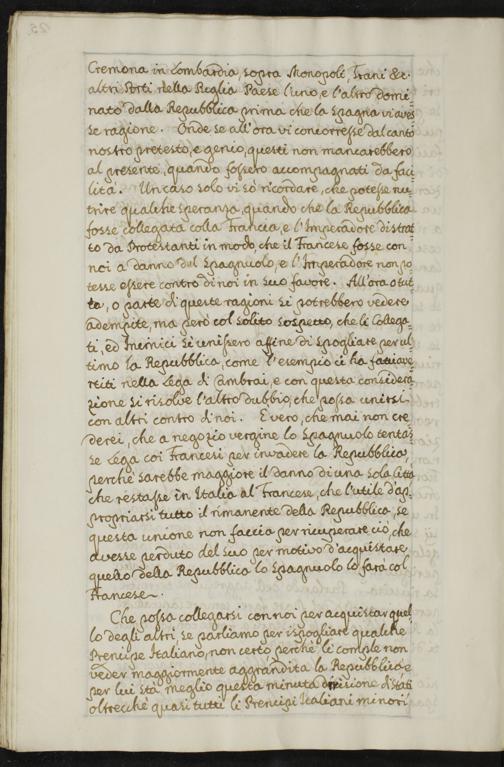 Cremona in Lombardia, sopra Monopoli, Trani &c.
altri Porti della Puglia Paese l'uno, e l'altro domi=
nato dalla Repubblica prima che la Spagna vi aves=
se ragione. Onde se all'ora vi concorresse dal canto
nostro pretesto, e genio, questi non mancarebbero
al presente, quando fossero accompagnati da faci
lità. Un caso solo vi sò ricordare, che potesse nu=
trire qualche speranza, quando che la Repubblica
fosse collegata colla Francia, e l'Imperadore distrat=
to da Protestanti in modo, che il Francese fosse con
noi a danno del Spagnuolo, e l'Imperadore non po=
tesse essere contro di noi in suo favore. All'ora o tut=
ta, o parte di queste ragioni si potrebbero vedere
adempite, ma però col solito sospetto, che li Collega=
ti, ed Inimici si unissero affine di spogliare per ul
timo la Repubblica, come l'esempio ci ha fatti aver
titi nella Lega di Cambrai, e con questa considera
zione si risolve l'altro dubbio, che possa unirsi
con altri contro di noi. E vero, che mai non cre
derei, che a negozio vergine lo Spagnuolo tentas=
se Lega coi Francesi per invadere la Repubblica,
perche sarebbe maggiore il danno di una sola Città
che restasse in Italia al Francese, che l'utile d'ap=
propriarsi tutto il rimanente della Repubblica, se
questa unione non faccia per ricuperare ciò, che
avesse perduto del suo per motivo d'acquistare
quello della Repubblica lo Spagnuolo lo farà col
Francese.
Che possa collegarsi con noi per acquistar quel=
lo degli altri, se parliamo per ispogliare qualche
Prencipe Italiano, non certo perchè li comple non
veder maggiormente aggrandita la Repubblica e
per lui stà meglio questa minuta divisione di stati
oltrecchè quasi tutti li Prencipi Italiani minori